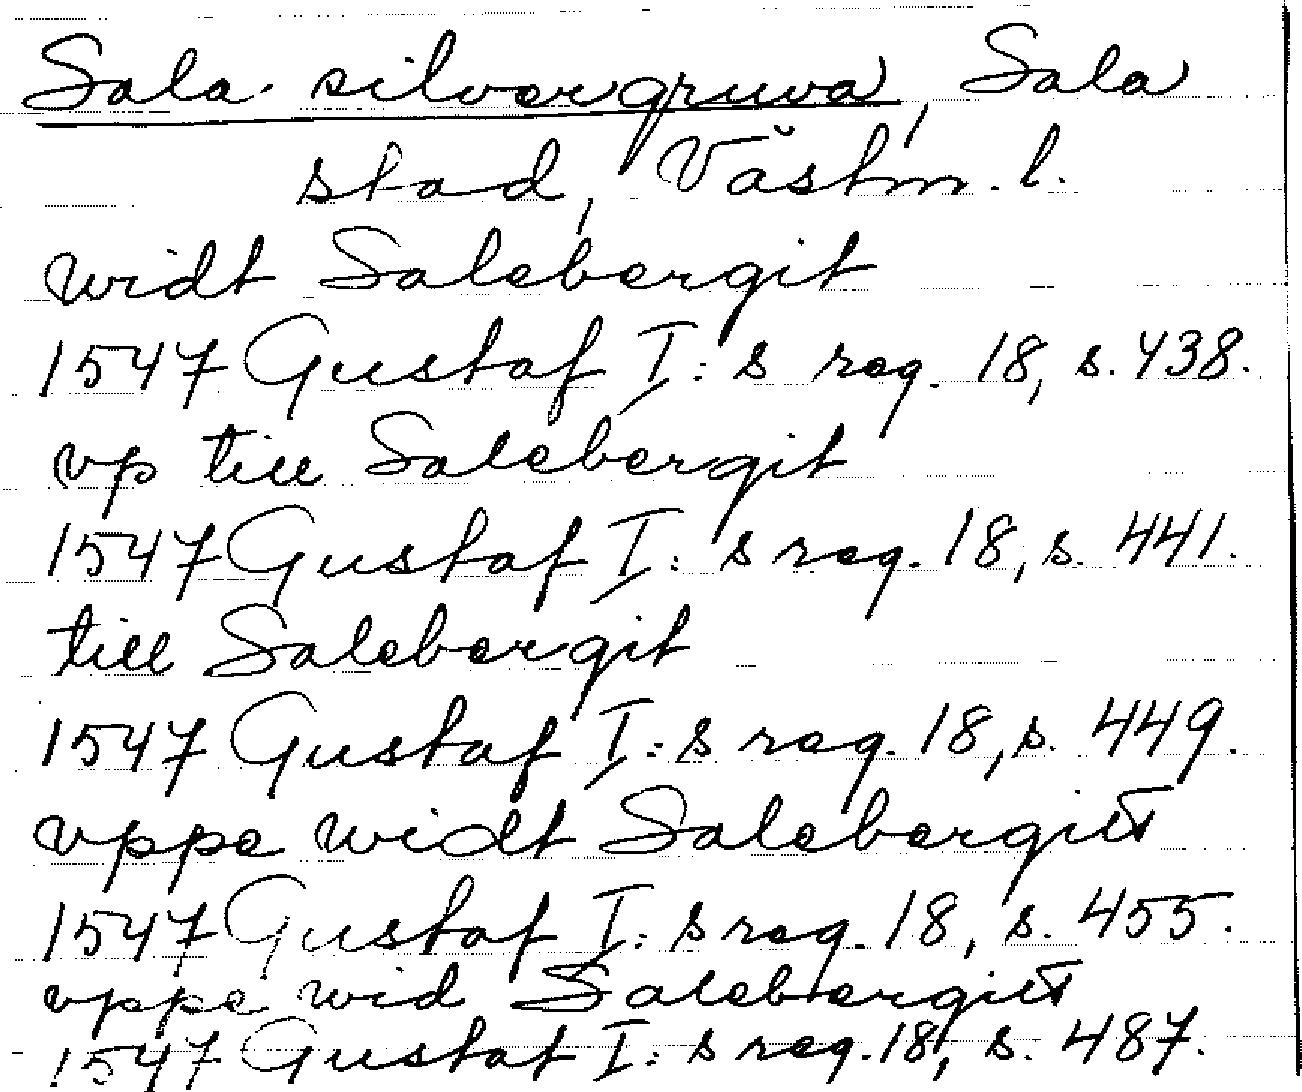 Sala silvergruva, Sala
stad, Västm. l.
widt Salebergit
1547 Gustaf I: s reg. 18, s. 438.
vp till Salebergit
1547 Gustaf I: s reg. 18, s. 441.
till Salebergit
1547 Gustaf I: s reg. 18, s. 449.
vppe widt Salebergitt
1547 Gustaf I: s reg. 18, s. 455.
vppe wid Salebergitt
1547 Gustaf I: s reg. 18, s. 487.